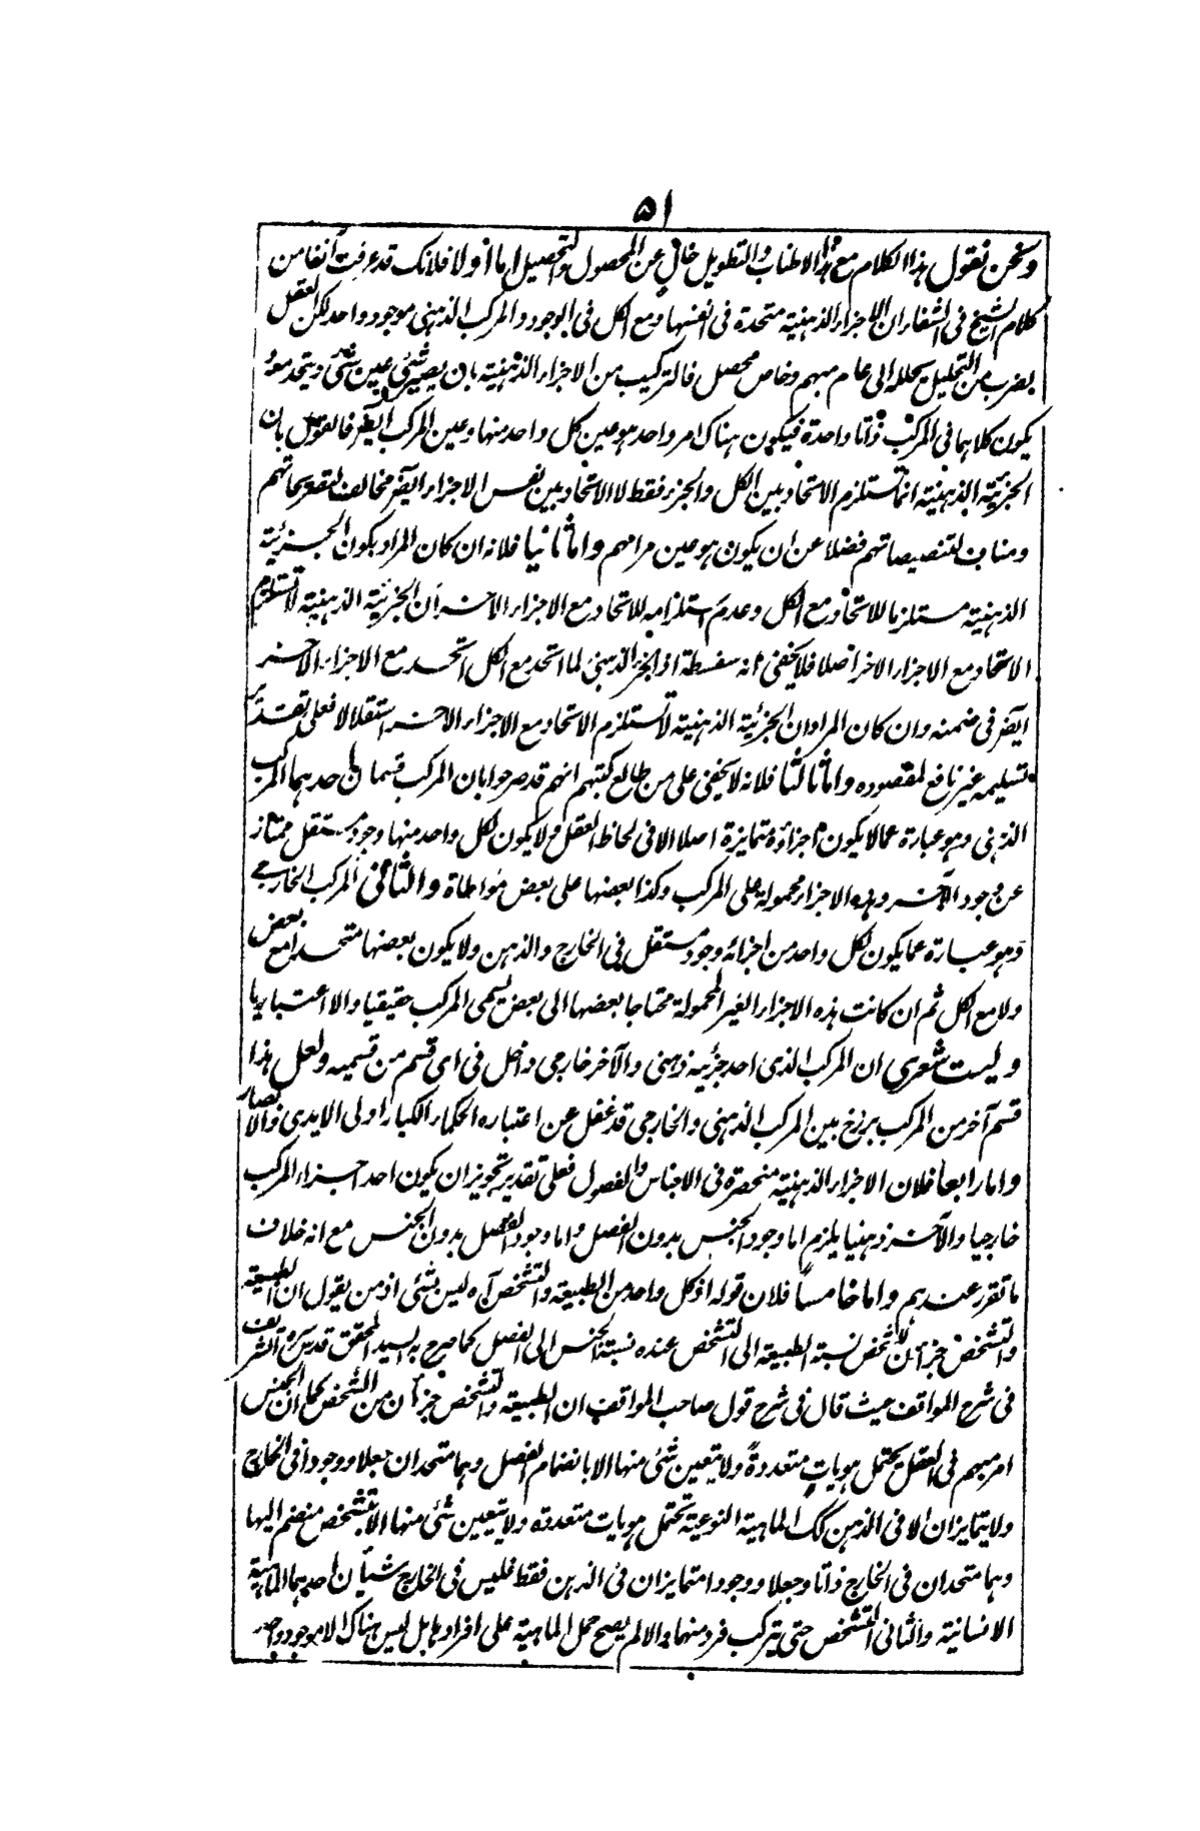 ۵۱
ونحن نقول هذا الكلام مع هذا الاطناب والتطويل خال عن المحصول والتحصيل اما أولا فلانك قد عرفت آنفا من
كلام الشيخ فى الشفاء ان الاجزاء الذهنية متحدة فى انفسها ومع الكل فى الوجود والمركب الذهنى موجود واحد لكن العقل
بضرب من التحليل يحلله الى عام مبهم وخاص محصل فالتركيب من الاجزاء الذهنية بان يصير شئ عين شئ ويتحد معه
يكون كلاهما فى المركب ذاتا واحدة فيكون هناك امر واحد هو عين كل واحد منها وعين المركب ايضر فالقول بان
الجزئية الذهنية انما تستلزم الاتحاد بين الكل والجزء فقط لا الاتحاد بين نفس الاجزاء ايضر مخالف لتصريحاتهم
ومناف لتنصيصاتهم فضلا عن ان يكون هو عين مرامهم واما ثانيا فلانه ان كان المراد بكون الجزئية
الذهنية مستلزما للاتحاد مع الكل وعدم استلزامه للاتحاد مع الاجزاء الاخر ان الجزئية الذهنية لا تستلزم
الاتحاد مع الاجزاء الاخر اصلا فلا يخفى انه سفسطة اذ الجزء الذهنى لما اتحد مع الكل اتحد مع الاجزاء الاخر
ايضر فى ضمنه وان كان المراد ان الجزئية الذهنية لا تستلزم الاتحاد مع الاجزاء الاخر استقلالا فعلى تقدير
تسليمه غير نافع لمقصوده واما ثالثا فلانه لا يخفى على من طالع كتبهم انهم قد صرحوا بان المركب قسمان احدهما المركب
الذهنى وهو عبارة عما لا يكون اجزاؤه متمايزة اصلا الا فى لحاظ العقل ولا يكون لكل واحد منها وجود مستقل ممتاز
عن وجود الآخر وهذه الاجزاء محمولة على المركب وكذا بعضها على بعض مواطاة والثانى المركب الخارجى
وهو عبارة عما يكون لكل واحد من اجزائه وجود مستقل فى الخارج والذهن ولا يكون بعضها متحدا مع بعض
ولا مع الكل ثم ان كانت هذه الاجزاء الغير المحمولة محتاجا بعضها الى بعض يسمى المركب حقيقيا والا اعتباريا
وليت شعرى ان المركب الذى احد جزئيه ذهنى والآخر خارجى داخل فى اى قسم من قسميه ولعل هذا
قسم آخر من المركب برزخ بين المركب الذهنى والخارجى قد غفل عن اعتباره الحكماء الكبار اولى الايدى والابصار
واما رابعا فلان الاجزاء الذهنية منحصرة فى الاجناس والفصول فعلى تقدير تجويز ان يكون احد اجزاء المركب
خارجيا والآخر ذهنيا يلزم اما وجود الجنس بدون الفصل واما وجود الفصل بدون الجنس مع انه خلاف
ما تقرر عندهم واما خامساً فلان قوله اذ كل واحد من الطبيعة والتشخص آه ليس بشئ اذ من يقول ان الطبيعة
والتشخص جزآن للشخص نسبة الطبيعة الى التشخص عنده نسبة الجنس الى الفصل كما صرح به السيد المحقق قدس سره الشريف
فى شرح المواقف حيث قال فى شرح قول صاحب المواقف ان الطبيعة والتشخص جزآن من الشخص كما ان الجنس
امر مبهم فى العقل يحتمل هويات متعددة ولا يتعين شئ منها الا بانضمام الفصل وهما متحدان جعلا ووجودا فى الخارج
ولا يتمايزان الا فى الذهن كك الماهية النوعية تحتمل هويات متعددة ولا يتعين شئ منها الا بتشخص منضم اليها
وهما متحدان فى الخارج ذاتا وجعلا ووجودا متمايزان فى الذهن فقط فليس فى الخارج شيأن احدهما الماهية
الانسانية والثانى التشخص حتى يتركب فرد منها والا لم يصح حمل الماهية على افرادها بل ليس هناك الا موجود واحد